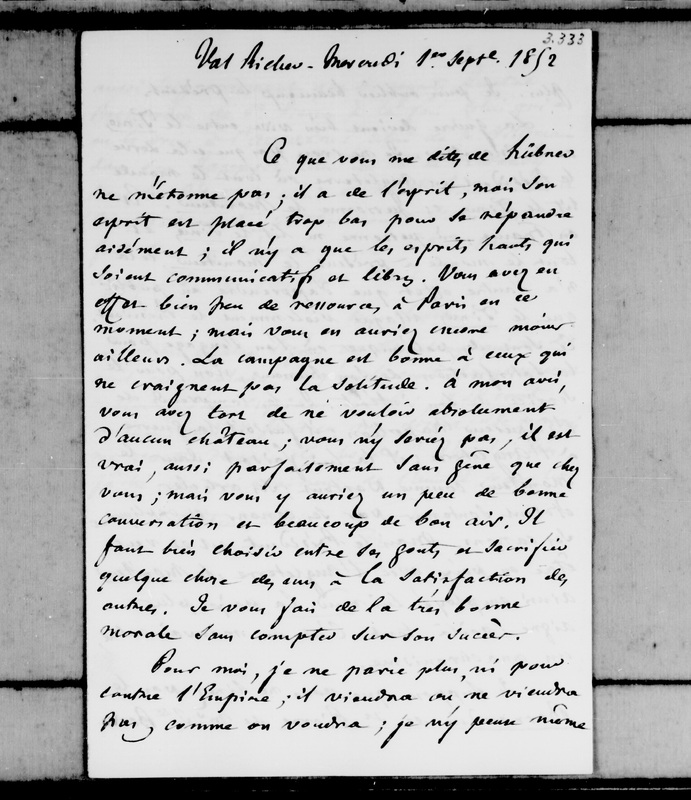 3.333
Val Richer - Mercredi 1er Septe. 1852
Ce que vous me dites de Hübner
ne m'étonne pas ; il a de l'esprit, mais son
esprit est placé trop bas pour se répandre
aisément ; il n'y a que les esprits hauts qui
soient communicatifs et libres. Vous avez en
effet bien peu de ressources à Paris en ce
moment ; mais vous en auriez encore moins
ailleurs. La campagne est bonne à ceux qui
ne craignent pas la solitude. à mon avis,
vous avez tort de ne vouloir absolument
d'aucun château ; vous n'y seriez pas, il est
vrai, aussi parfaitement sans gêne que chez
vous ; mais vous y auriez un peu de bonne
conversation et beaucoup de bon air. Il
faut bien choisir entre ses gouts et sacrifier
quelque chose des uns à la satisfaction des
autres. Je vous fais de la très bonne
morale sans compter sur son succès.
Pour moi, je ne parie plus, ni pour
contre l'Empire ; il viendra ou ne viendra
pas, comme on voudra ; je n'y pense même